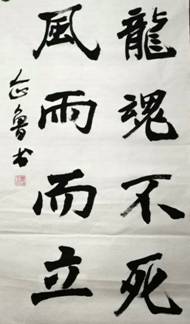 龍魂不死
風雨而立
魯书